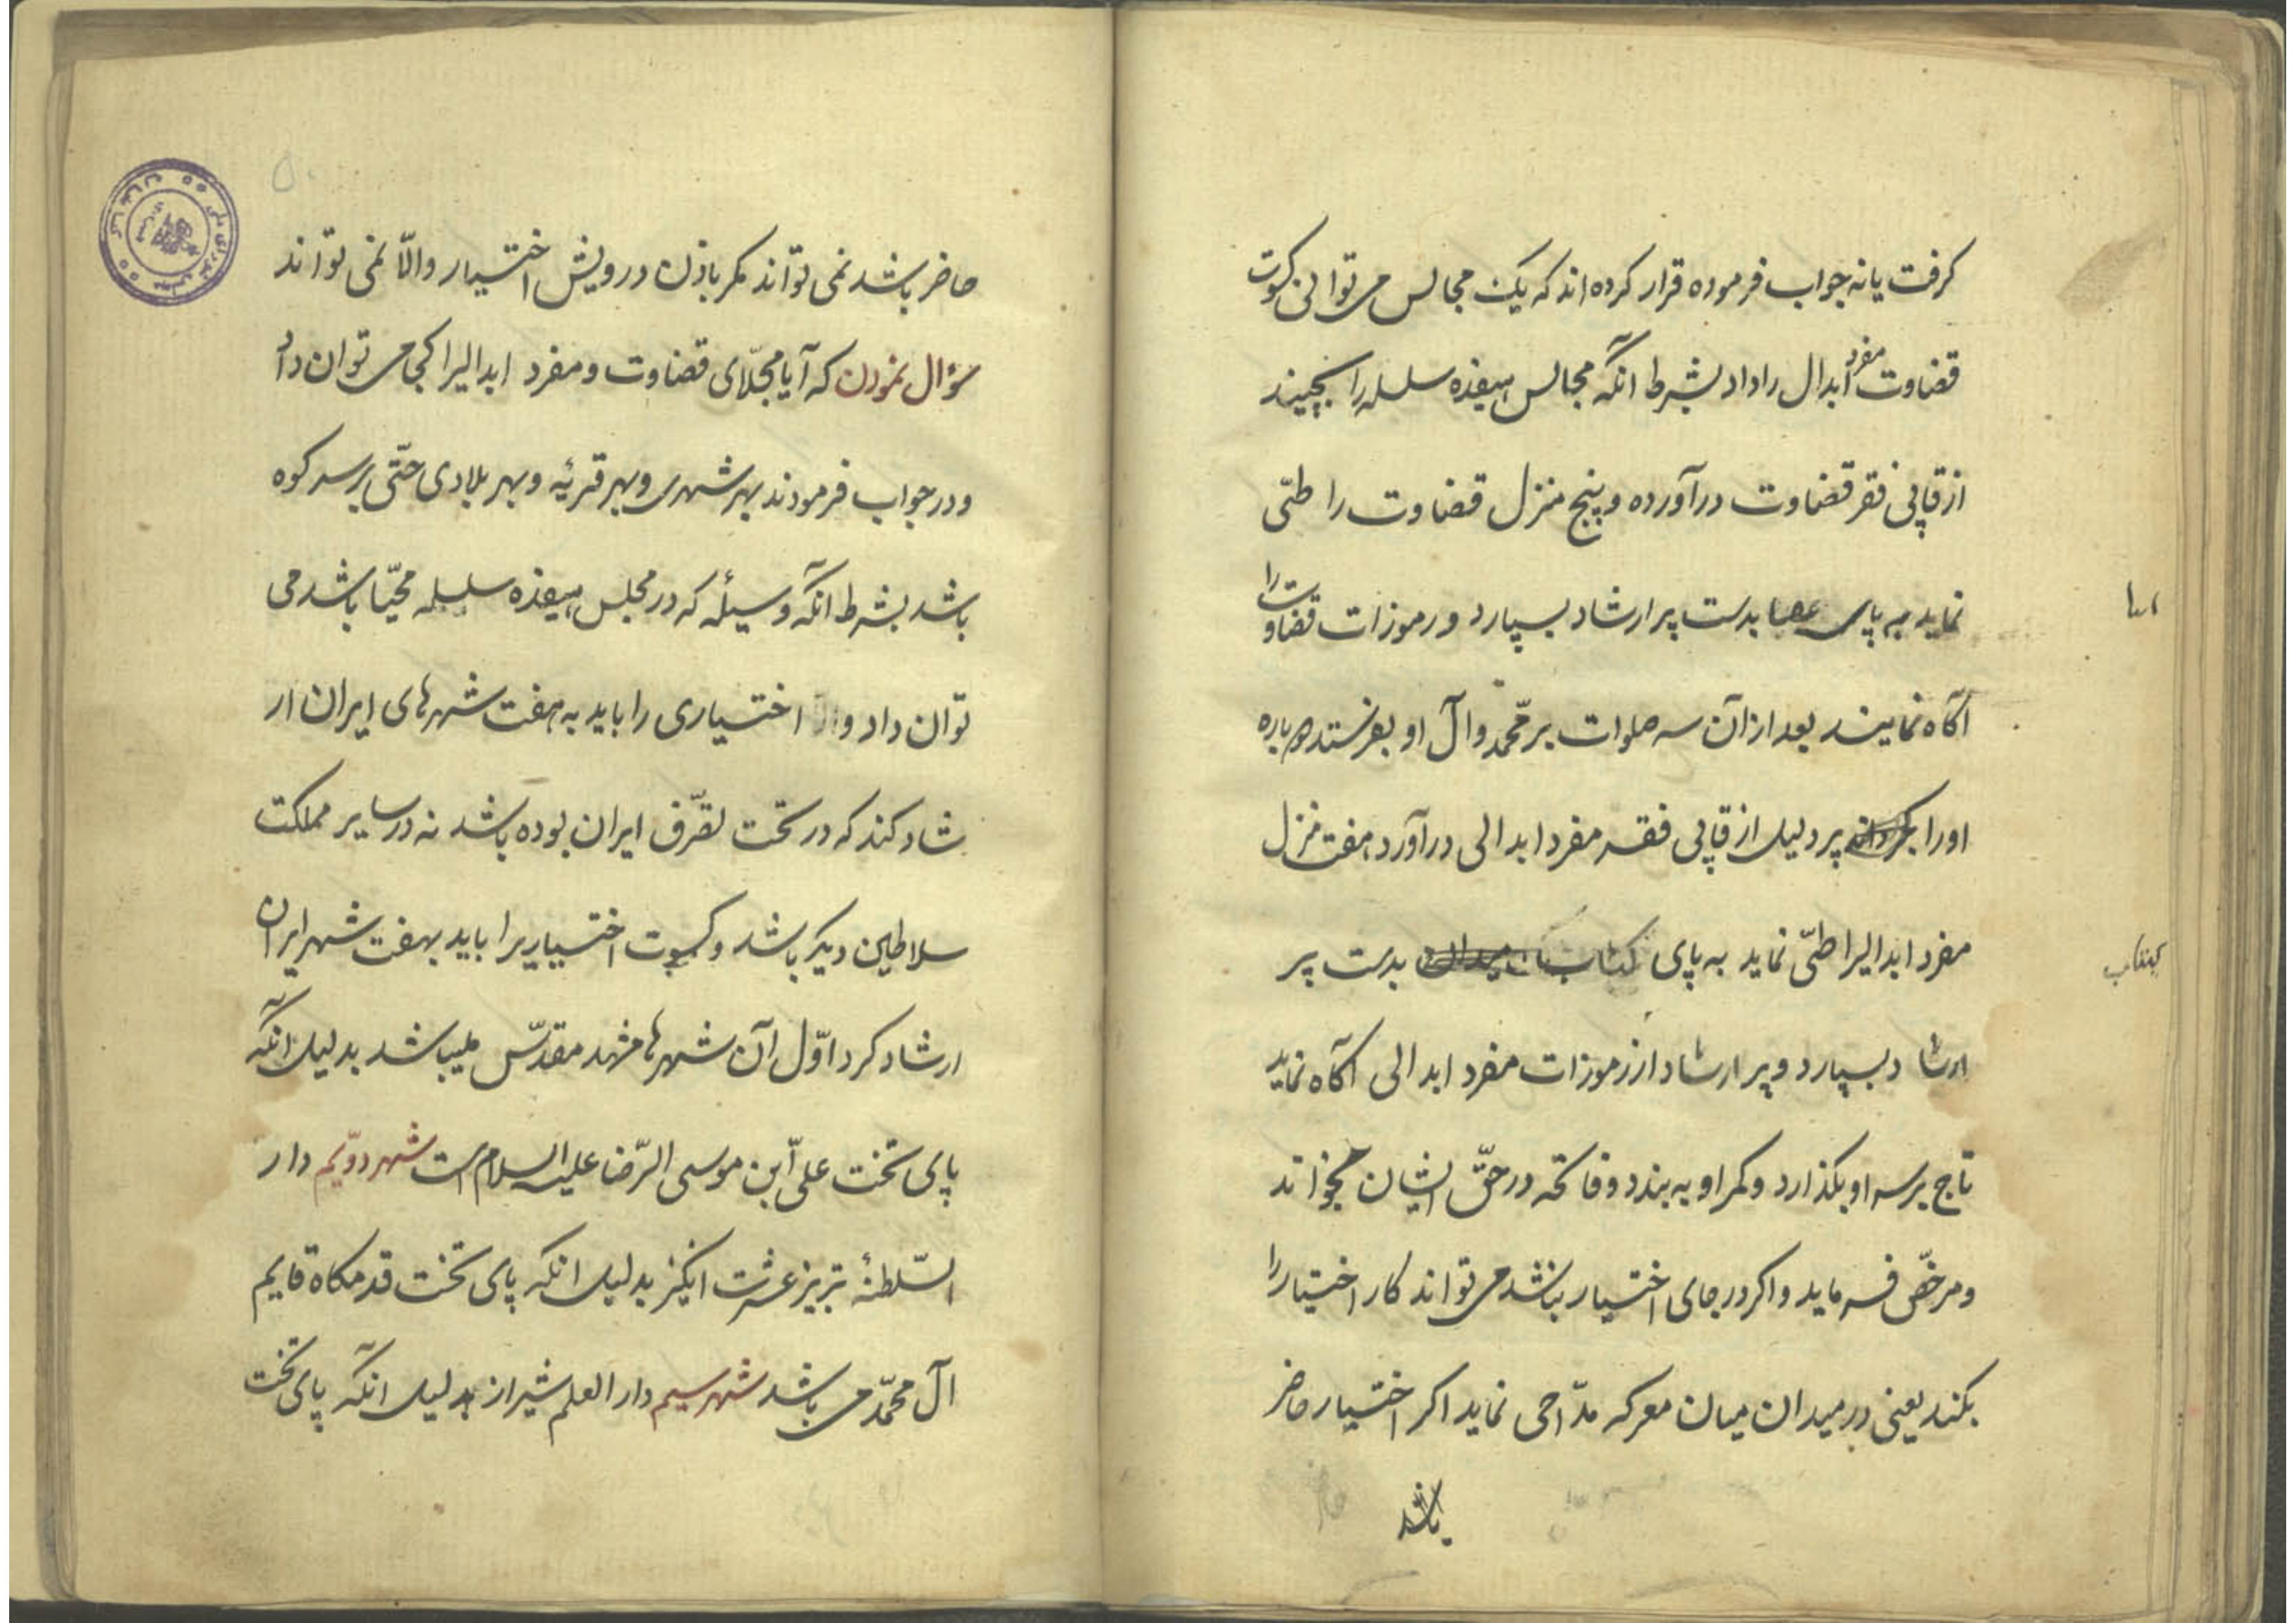 کرفت یا نه جواب فرموده قرار کرده اند که یک مجالس می توانی کسوت
قضاوت مفرد ابدال را داد بشرط آنکه مجالس هیفده سلسله را بچیند
از قاپی فقر قضاوت درآورده و پنج منزل قضاوت را طتی
نماید به پای عصا بدست پر ارشاد بسپارد و رموزات قضاوت را
آکاه نمایند بعد از آن سه صلوات بر محمّد و آل او بفرستد باره
او را پر دلیل از قاپی فقر مفرد ابدالی درآورد هفت منزل
مفرد ابدالیرا طتی نماید به پای کتاب بدست پر
کتاب
ارشاد بسپارد و پر ارشاد از رموزات مفرد ابدالی آکاه نماید
تاج بر سر او بکذارد و کمر او به بندد و فاتحه در حقّ ایشان بخواند
و مرخّص فرماید و اکر در جای اختیار بنشد می تواند کار اختیار را
بکند یعنی در میدان میان معرکه مدّاحی نماید اکر اختیار حاضر
باشد
۵۰
حاضر باشد نمی تواند مکر باذن درویش اختیار والّا نمی تواند
سؤال نمودن که آیا مجلّای قضاوت و مفرد ابدالیرا کجا می توان داد
و در جواب فرمودند بهر شهری و بهر قریٔه و بهر بلادی حتّی برسر کوه
باشد بشرط آنکه وسیلٔه که در مجلس هیفده سلسله محیّا باشد می
توان داد و اختیاری را باید به هفت شهرهای ایران ار
شاد کند که در تخت تصرّف ایران بوده باشد نه در سایر مملکت
سلاطین دیکر باشد و کسوت اختیاریرا باید بهفت شهر ایران
ارشاد کرد اوّل آن شهرها مشهد مقدّس میباشد بدلیل آنکه
پای تخت علیّ ابن موسی الرّضا علیه السلام است شهر دوّیم دار
السّلطنهٔ تبریز عشرت انکیز بدلیل انکه پای تخت قدمکاه قایم
آل محمّد می باشد شهر سیم دار العلم شیراز بدلیل انکه پای تخت